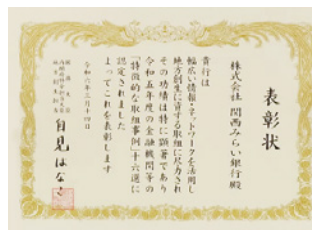 表彰状
株式会社 関西みらい銀行殿
貴行は
幅広い情報・ネットワークを活用し
地方創生に資する取組に尽力され
その功績は特に顕著であり
令和五年度の金融機関等の
「特徴的な取組事例」十六選に
認定されました
よってこれを表彰します
令和六年三月十四日
自見はなこ